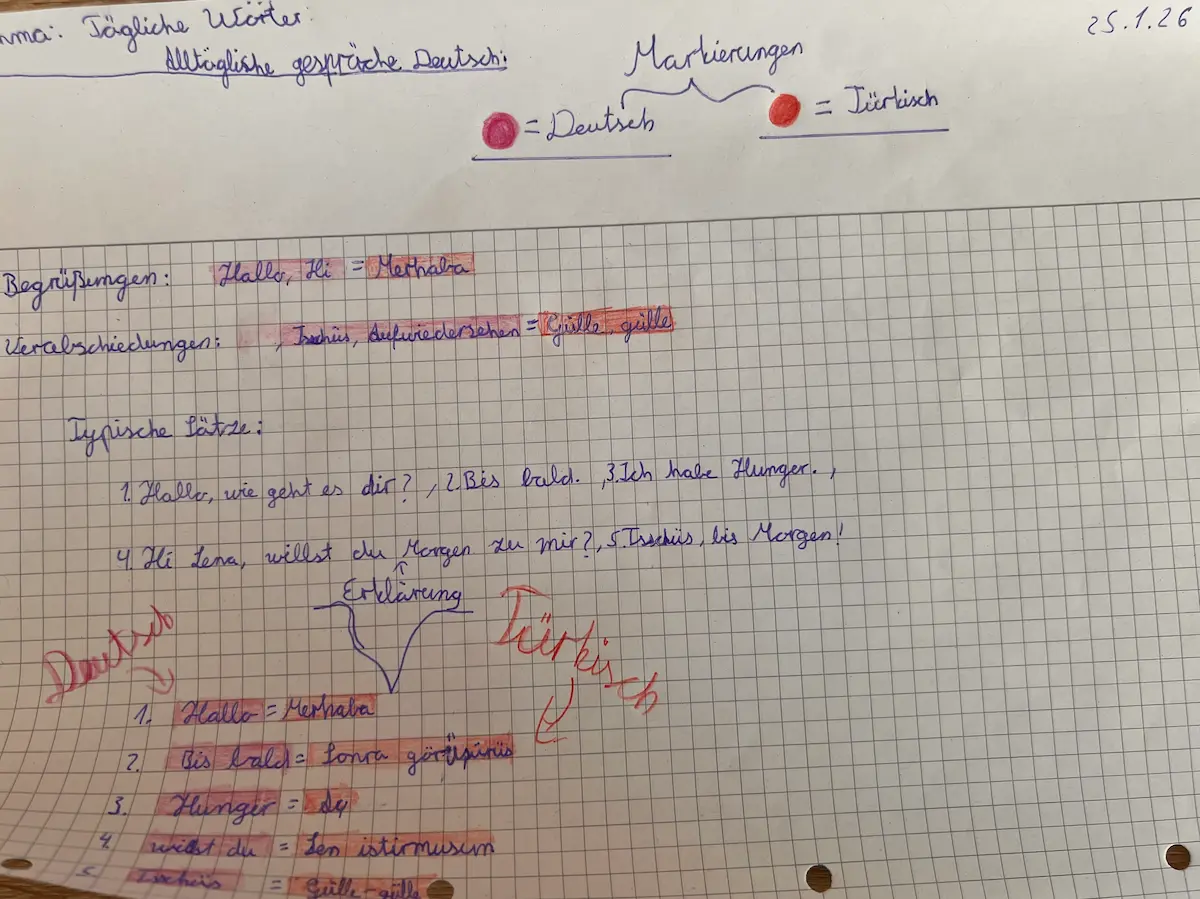 Tägliche Wörter:
25.1.26
Alltägliche gespräche Deutsch:
Markierungen
= Deutsch
= Türkisch
Begrüßungen: Hallo, Hi = Merhaba
Verabschiedungen: , Tschüs, Aufwiedersehen = Gülle, gülle
Typische Sätze:
1. Hallo, wie geht es dir? , 2. Bis bald. , 3. Ich habe Hunger. ,
4. Hi Lena, willst du Morgen zu mir?, 5. Tschüs, bis Morgen!
Erklärung
Deutsch
Türkisch
1. Hallo = Merhaba
2. Bis bald = Sonra
3. Hunger =
4. willst du = Sen istirmusum
5. Tschüs = Gülle-gülle